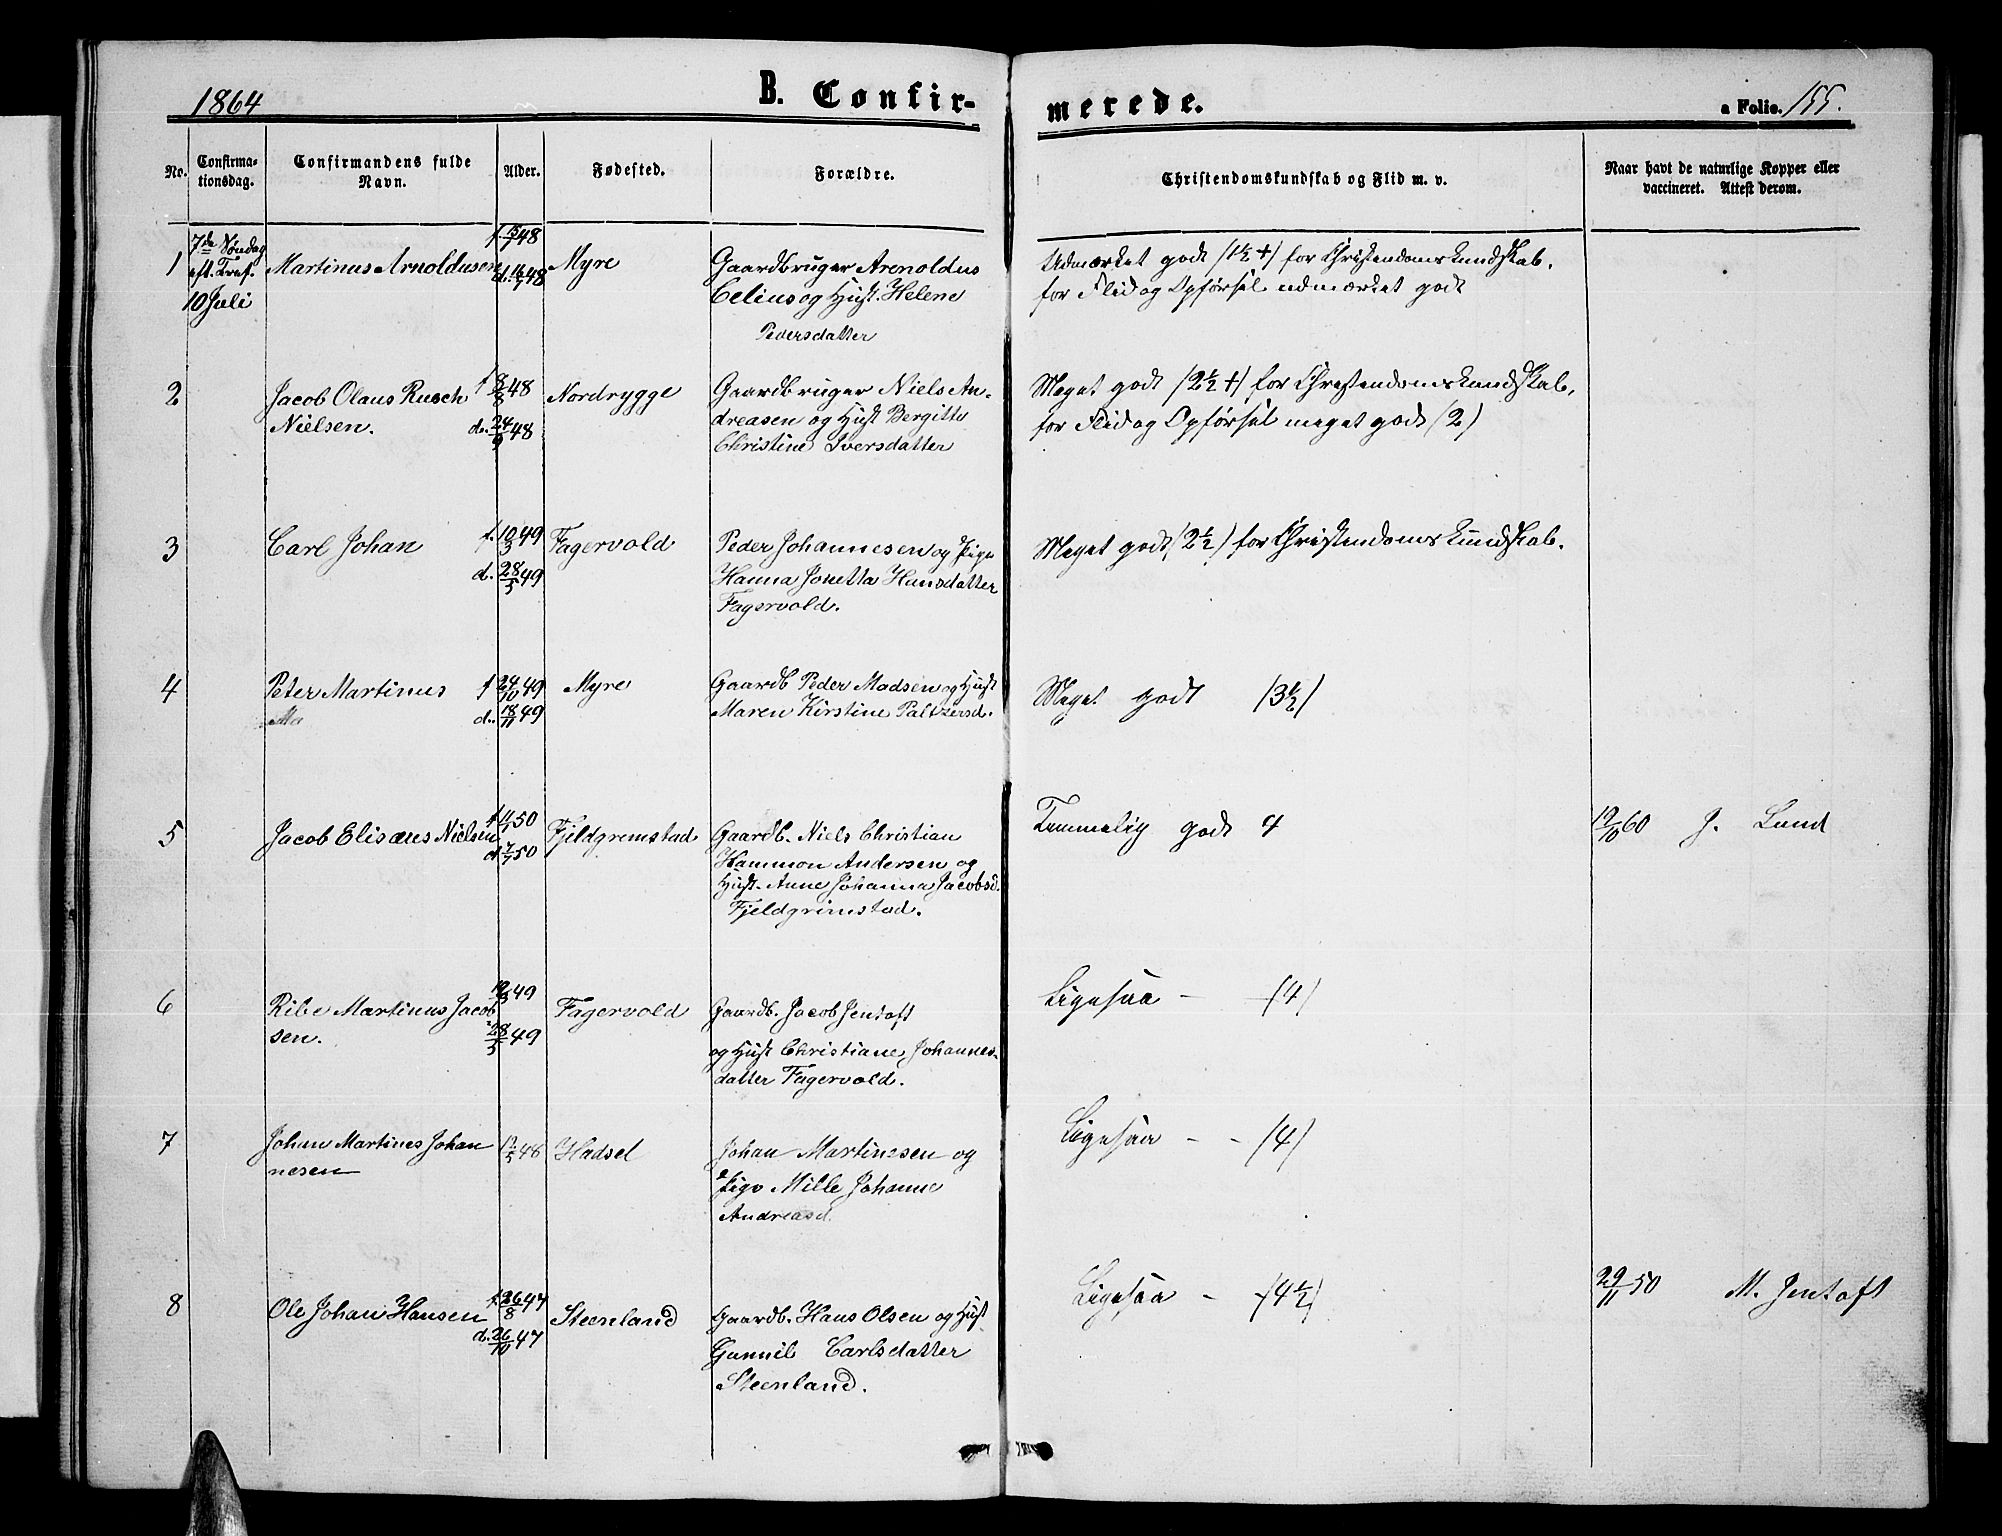 1864
B. Confir-
merede.
a Folio. 155.
No.
Confirma-
tionsdag.
Confirmandens fulde
Navn.
Alder.
Fødested.
Forældre.
Christendomskundskab og Flid m. v.
Naar havt de naturlige Kopper eller
vaccineret. Attest derom.
1
7de Søndag
eft. Tref.
10 Juli
Martinus Arnoldusen
48
48
Myre
Gaardbruger Arenoldus
Celius og Hust. Helene
Pedersdatter
Udmærket godt (1½ +) for Christendomskundskab.
for Flid og Opførsel udmærket godt
2
Jacob Olaus Rusch
Nielsen.
f 8/8 48
d. 24/9 48
Nordrygge
Gaardbruger Niels An-
dreasen og Hust Bergitte
Christine Iversdatter
Meget godt (2½ +) for Christendomskundskab,
for Flid og Opførsel meget godt (2)
3
Carl Johan
f. 10/3 49
d. 28/5 49
Fagervold
Peder Johannesen og Pige
Hanna Jonetta Hansdatter
Fagervold.
Meget godt (2½) for Christendomskundskab.
4
Peter Martinus
Ma
f 24/10 49
d. 18/11 49
Myre
Gaardb Peder Madsen og Hust
Maren Kirstine Paltzersd.
Meget godt (3½)
5
Jacob Elisæus Nielsen
50
50
Fjeldgremstad
Gaardb. Niels Christian
Hammon Andersen og
Hust. Anne Johanna Jacobsd.
Fjeldgrimstad.
Temmelig godt 4
19/10 60 J. Lund
6
Ribe Martinus Jacob
sen.
49
28/5 49
Fagervold
Gaardb. Jacob Jentoft
og Hust Christiane Johannes-
datter Fagervold.
Ligesaa - (4)
7
Johan Martines Johan
nesen
48
Hadsel
Johan Martinesen og
Pige Mille Johanne
Andreasd.
Ligesaa - - (4)
8
Ole Johan Hansen
f. 26/8 47
d. 26/10 47
Steenland
Gaardb. Hans Olsen og Hust.
Gunnil Carlsdatter
Steenland.
Ligesaa - (4½)
29/11 50 M. Jentoft